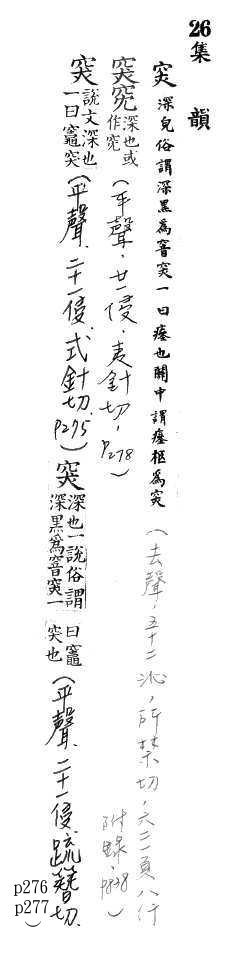 26
集韻
突 深皃俗謂深黑爲窨突一曰瘞也關中謂瘞柩爲突
(去聲,五十二沁,所禁切,六二一頁八行
附錄,p838)
突 突 深也或作突
(平聲,廿一侵,夷針切,p278)
突 說文深也一曰竈突
(平聲、二十一侵、式針切、p275)
突 深也一說俗謂深黑爲窨突一曰竈突也
(平聲、二十一侵、疏簪切、
p276
p277)